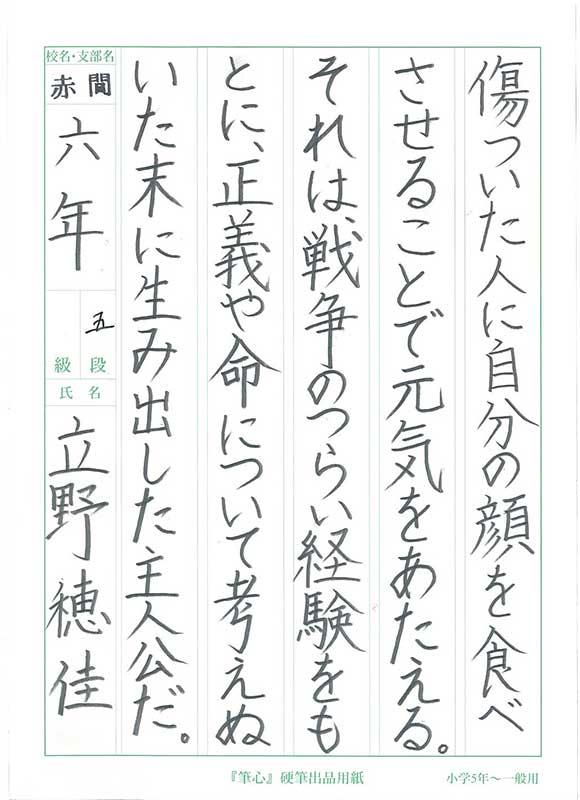 傷ついた人に自分の顔を食べ
させることで元気をあたえる。
それは、戦争のつらい経験をも
とに、正義や命について考えぬ
いた末に生み出した主人公だ。
校名・支部名
赤間
六年
五
級段
氏名
立野穂佳
『筆心』硬筆出品用紙
小学5年～一般用